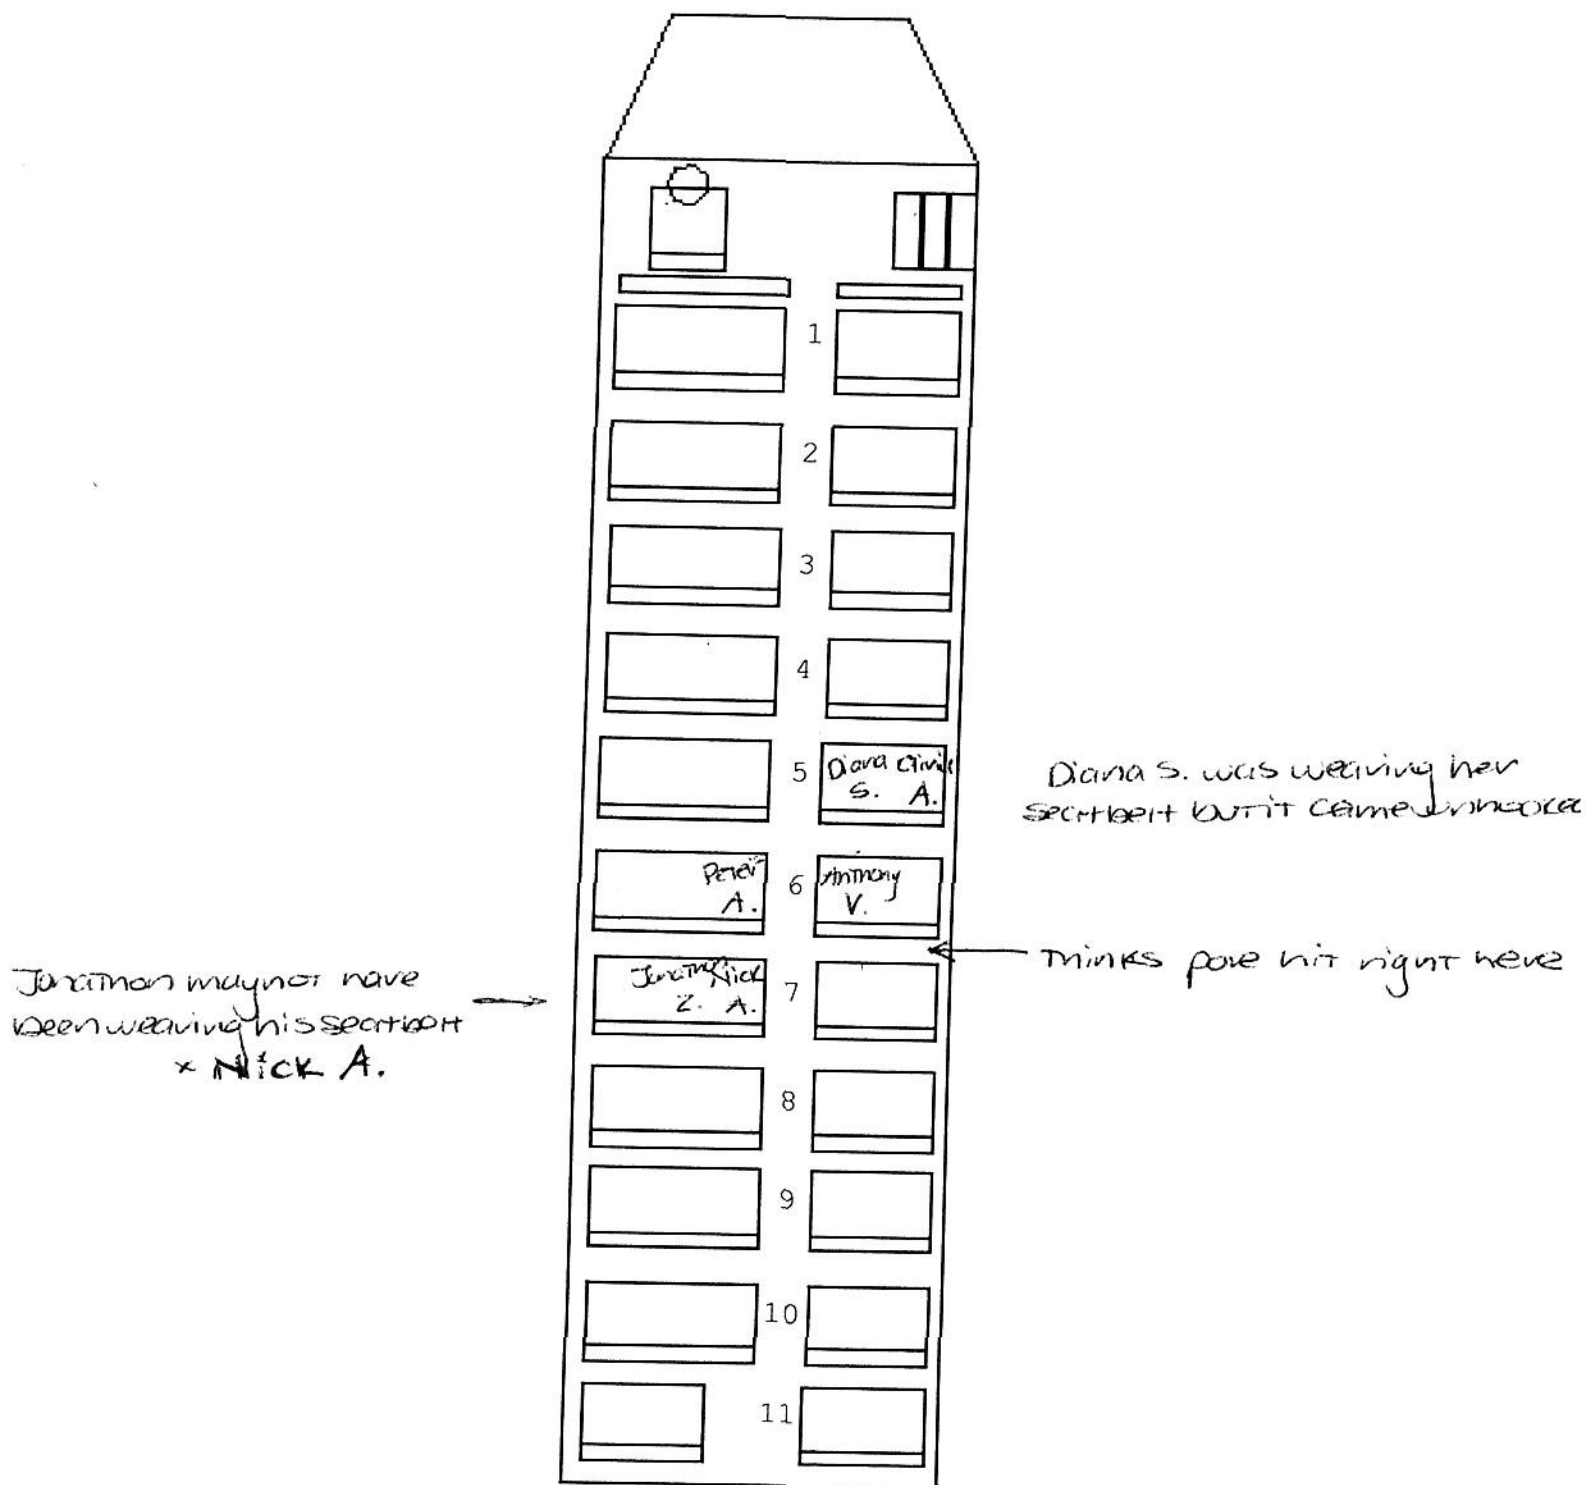 1
2
3
4
5 Diana
S. A.
Diana S. was wearing her
seatbelt but it came unhooked
Peter 6 Anthony
A. V.
Thinks pole hit right here
Jonathon Nick 7
Z. A.
Jonathon may not have
been wearing his seatbelt
x Nick A.
8
9
10
11